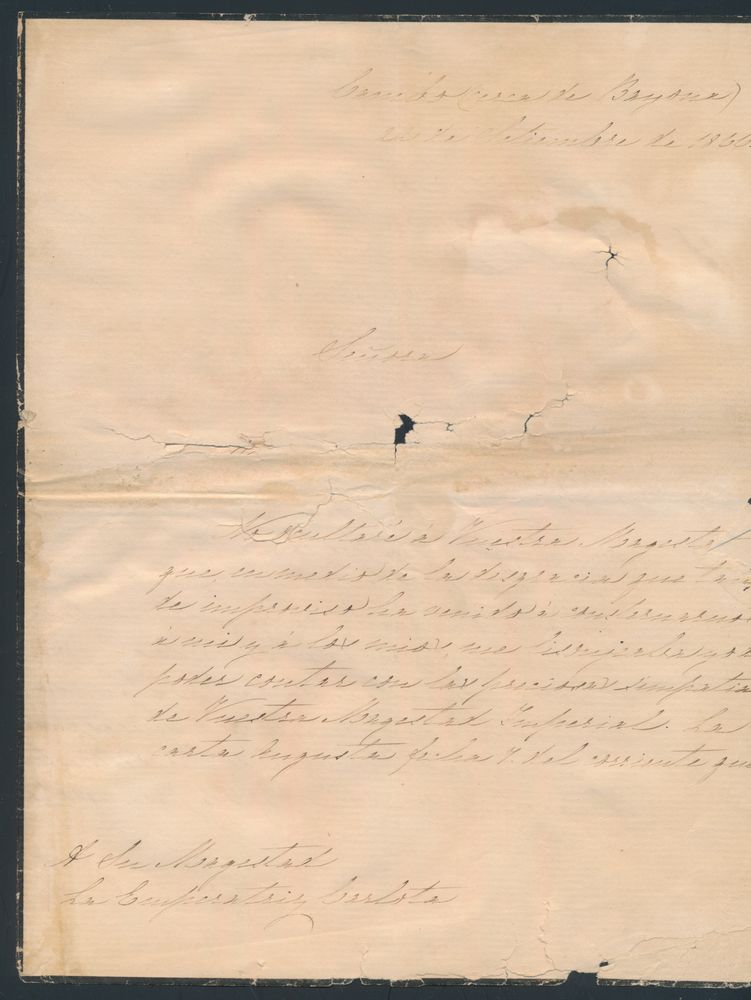 (cerca de Bayona)
de Setiembre de 186
Señora
No ocultaré à Vuestra Magesta
que, en medio de la desgracia que tan
de improviso ha venido à consternarnos
à mi y à los mios, me lisonjeaba yo
poder contar con las preciosas simpatias
de Vuestra Magestad Imperial. La
carta augusta fecha 7. del corriente que
A Su Magestad
La Emperatriz Carlota